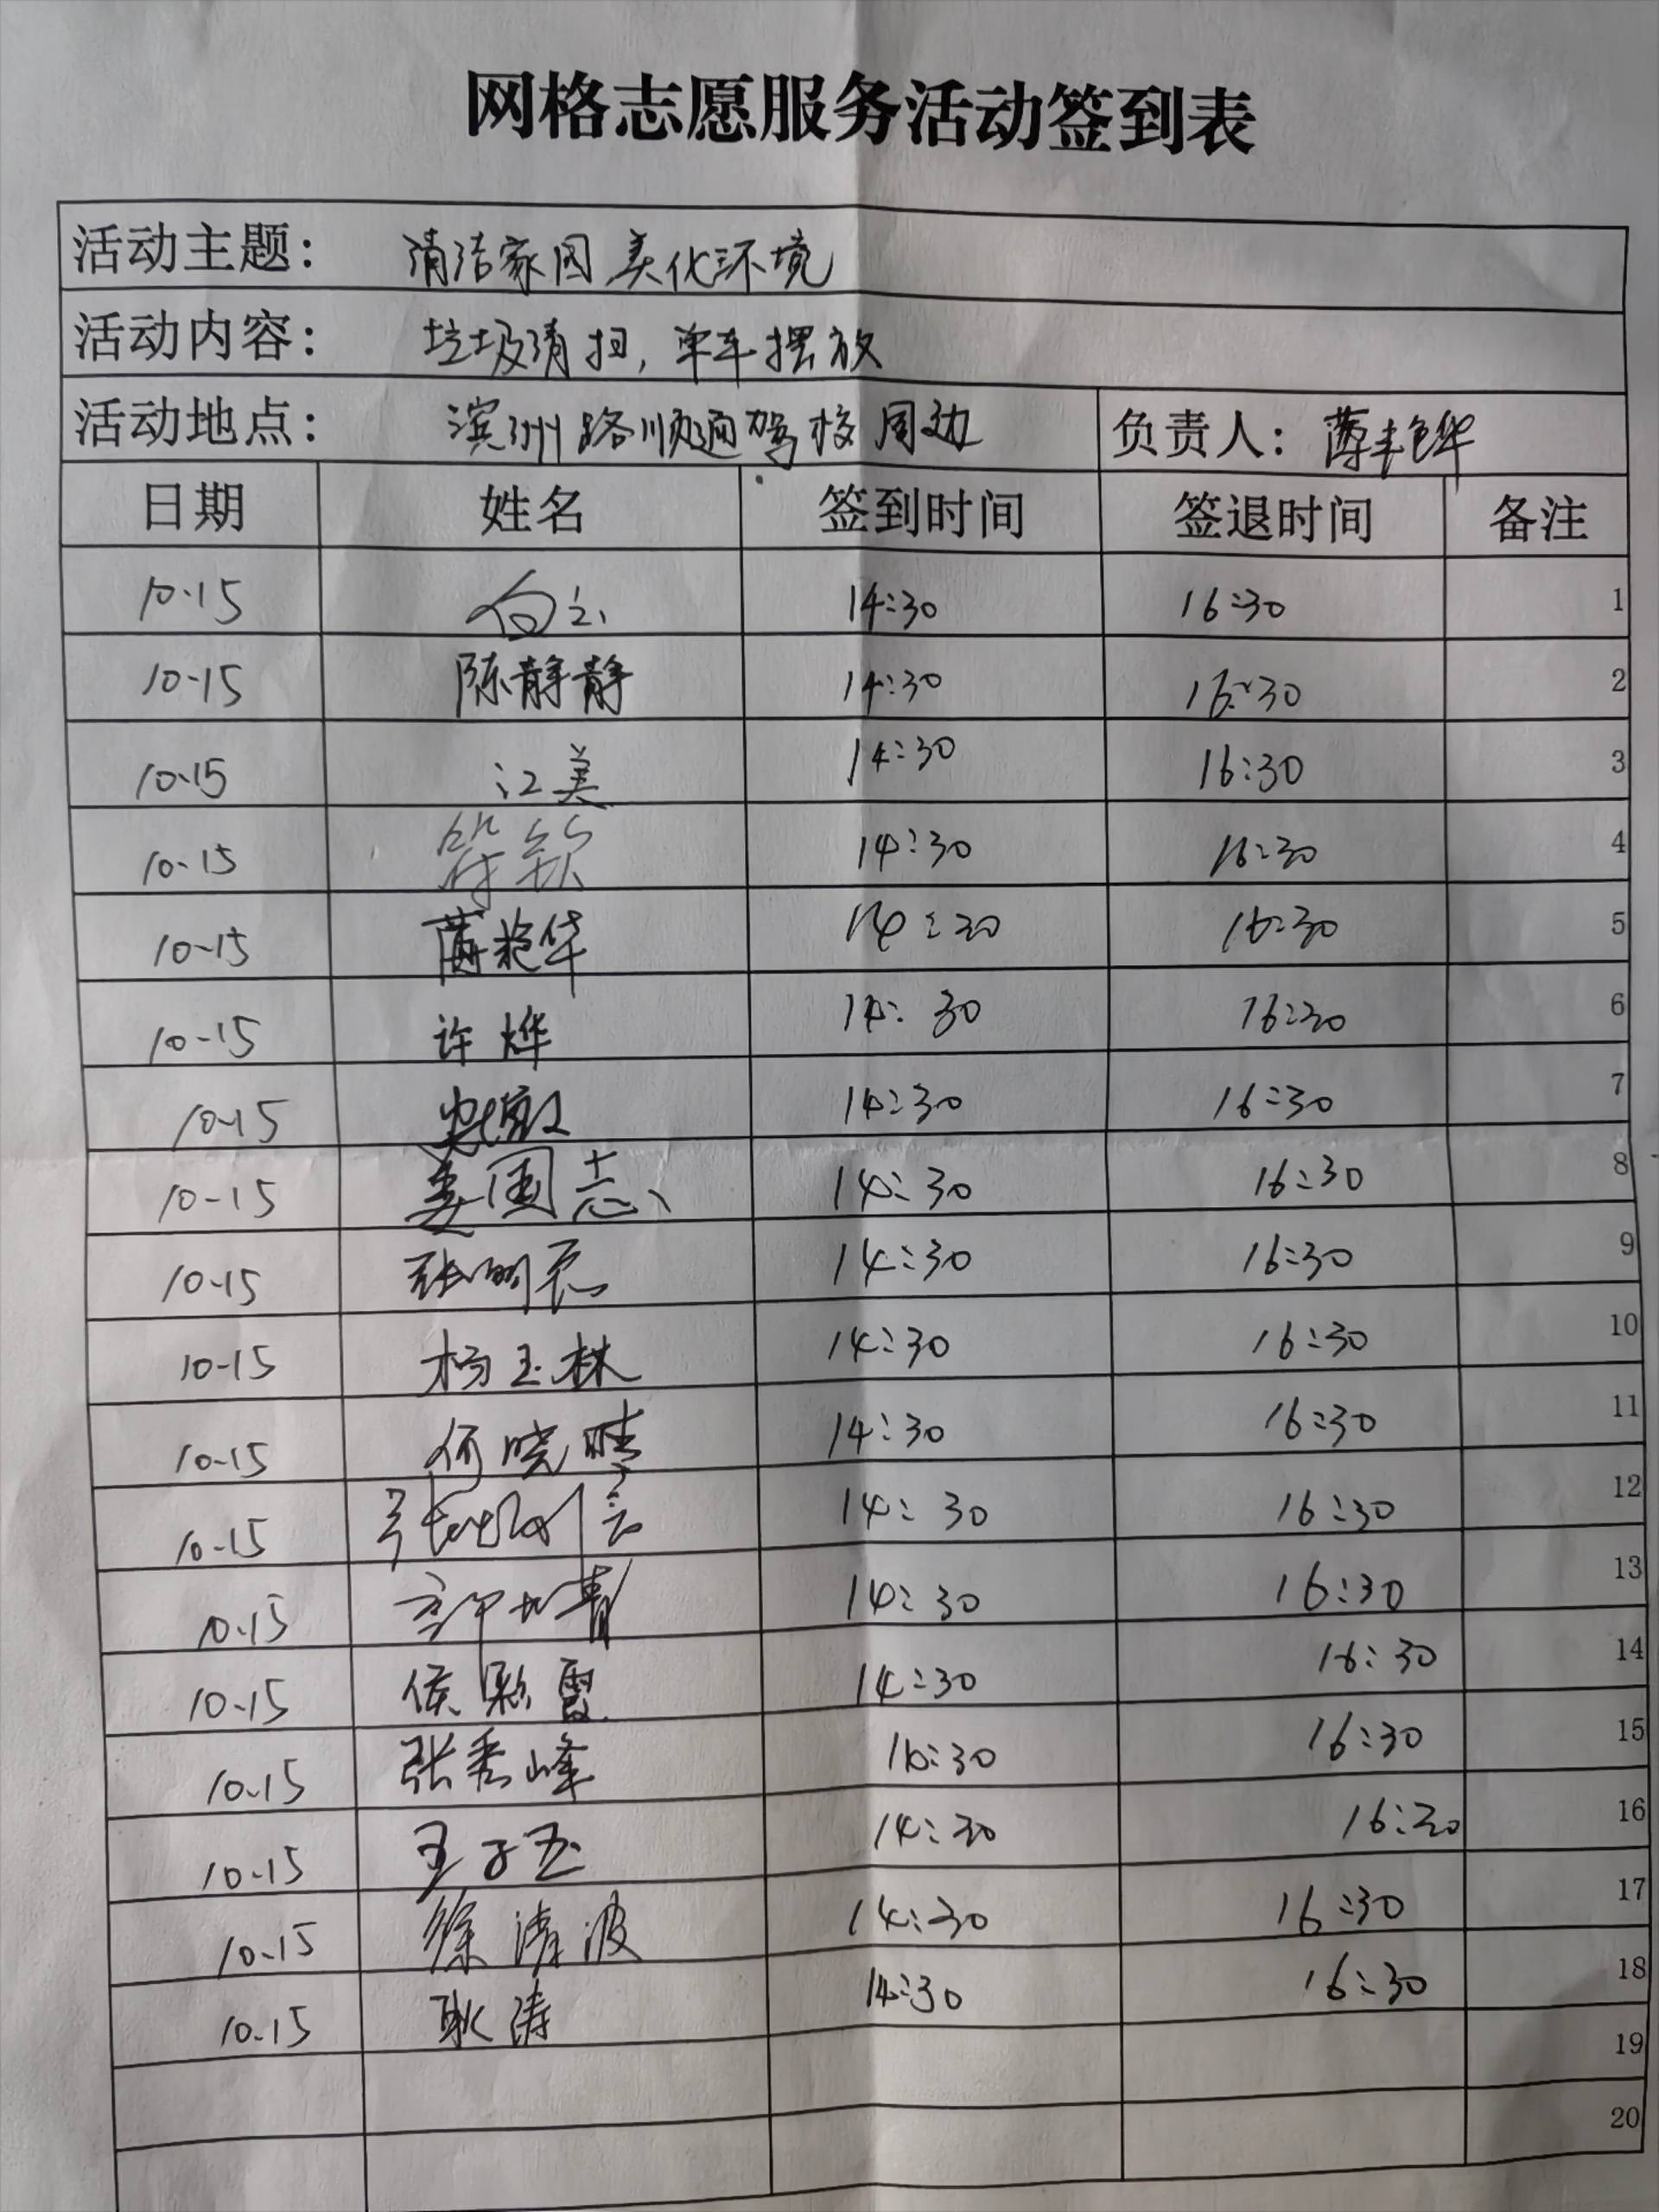 网格志愿服务活动签到表
活动主题： 清洁家园 美化环境
活动内容： 垃圾清扫，单车摆放
活动地点： 滨洲路顺通驾校周边 负责人：薄艳华
日期 姓名 签到时间 签退时间 备注
10.15 白云 14:30 16:30 1
10-15 陈静静 14:30 16:30 2
10-15 江美 14:30 16:30 3
10-15 14:30 16:30 4
10-15 薄艳华 14:30 16:30 5
10-15 许烨 14:30 16:30 6
10-15 14:30 16:30 7
10-15 姜国志 14:30 16:30 8
10-15 张明 14:30 16:30 9
10-15 杨玉林 14:30 16:30 10
10-15 何晓晴 14:30 16:30 11
10-15 14:30 16:30 12
10.15 14:30 16:30 13
10-15 侯彩霞 14:30 16:30 14
10.15 张秀峰 16:30 16:30 15
10.15 王子玉 14:30 16:30 16
10.15 徐清波 14:30 16:30 17
10.15 耿涛 14:30 16:30 18
19
20